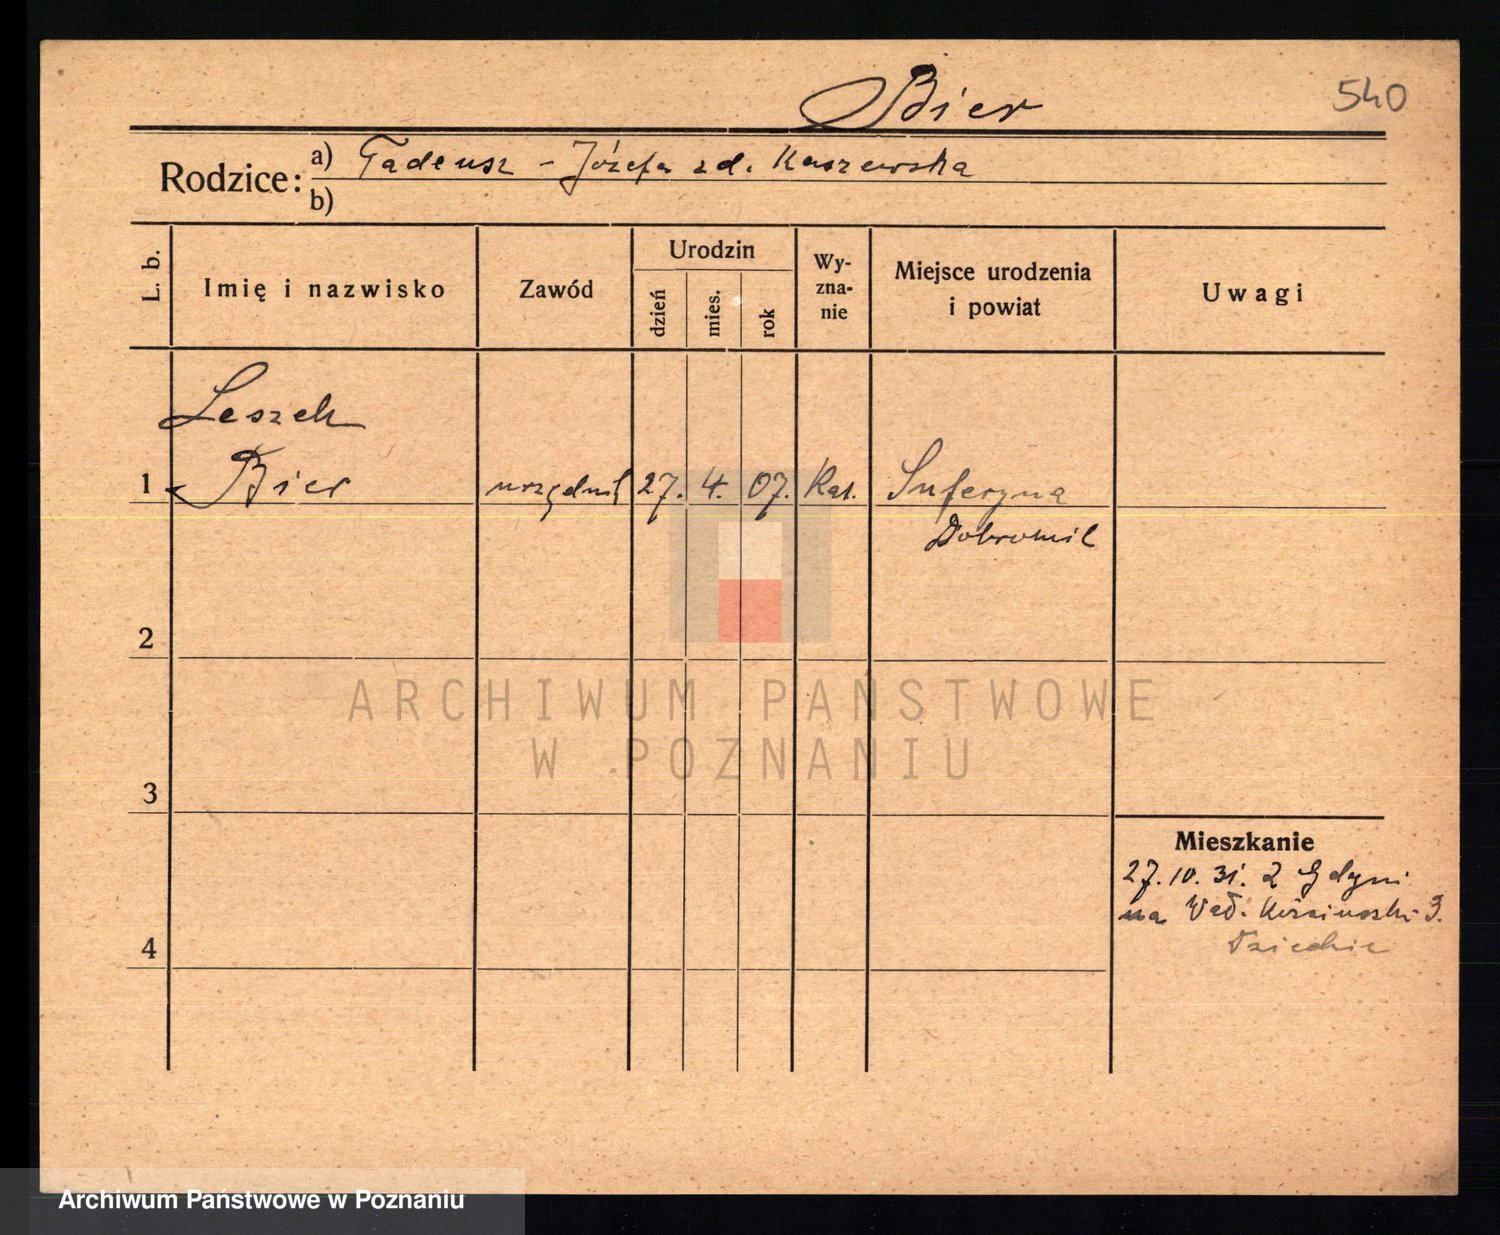 Bier
540
Rodzice:
a) Tadeusz - Józefa zd. Kaszewska
b)
L. b.
Imię i nazwisko
Zawód
Urodzin
dzień
mies.
rok
Wy-
zna-
nie
Miejsce urodzenia
i powiat
Uwagi
Leszek
1 Bier urzędnik 27. 4. 07. Kat.
Dobromil
2
3
4
Mieszkanie
27.10.31. z Gdyni
na 3.
ARCHIWUM PAŃSTWOWE
W POZNANIU
Archiwum Państwowe w Poznaniu